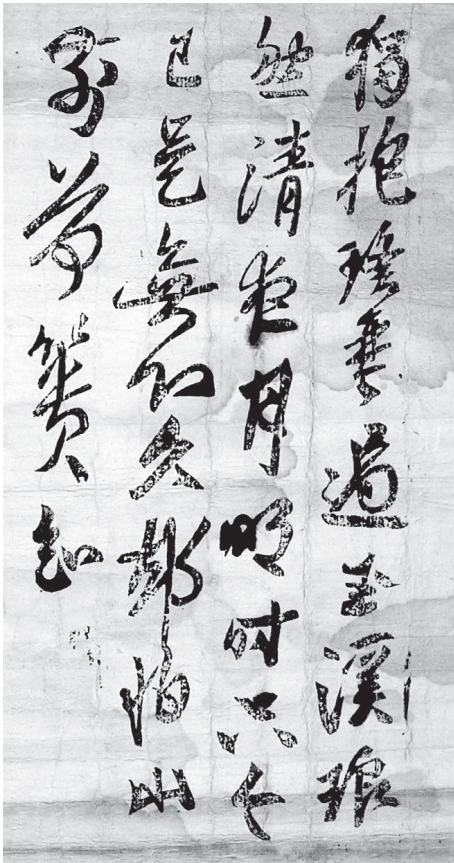 獨抱瑤琴過玉溪琅
然清夜月明時只今
已是無心久却怕山
前荷蕢知